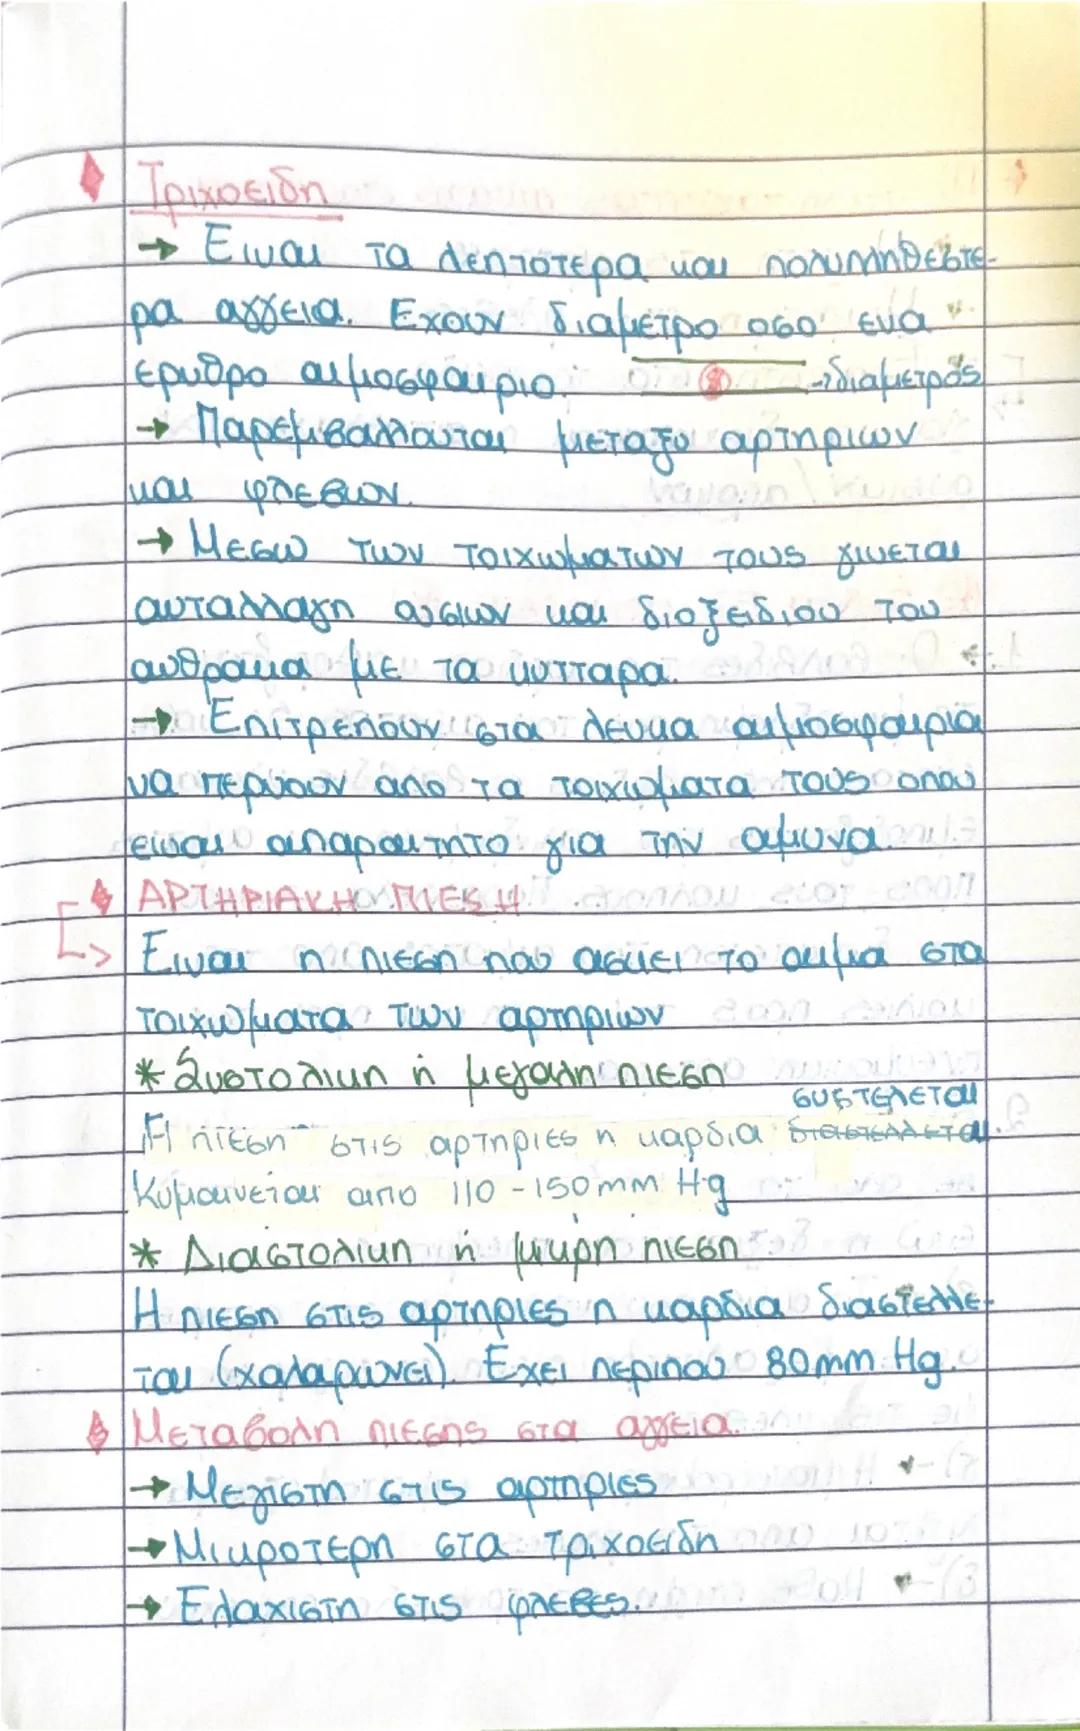 Τριχοειδη
→ Ειναι τα λεπτοτερα και πολυπληθεστε-
ρα αγγεια. Εχουν διαμετρο οσο ενα
ερυθρο αιμοσφαιριο. →διαμετρος
→ Παρεμβαλλονται μεταξυ αρτηριων
και φλεβων.
→ Μεσω των τοιχωματων τους γινεται
ανταλλαγη ουσιων και διοξειδιου του
ανθρακα με τα κυτταρα.
→ Επιτρεπουν στα λευκα αιμοσφαιρια
να περνουν απο τα τοιχωματα τους οπου
ειναι απαραιτητο για την αμυνα.
ΑΡΤΗΡΙΑΚΗ ΠΙΕΣΗ
Ειναι η πιεση που ασκει το αιμα στα
τοιχωματα των αρτηριων
* Συστολικη ή μεγαλη πιεση
συστελεται
Η πιεση στις αρτηριες η καρδια διαστελλεται.
Κυμαινεται απο 110-150mm Hg
* Διαστολικη ή μικρη πιεση
Η πιεση στις αρτηριες η καρδια διαστελλε-
ται (χαλαρωνει). Εχει περιπου 80mm Hg.
Μεταβολη πιεσης στα αγγεια.
→ Μεγιστη στις αρτηριες
→ Μικροτερη στα τριχοειδη
→ Ελαχιστη στις φλεβες.